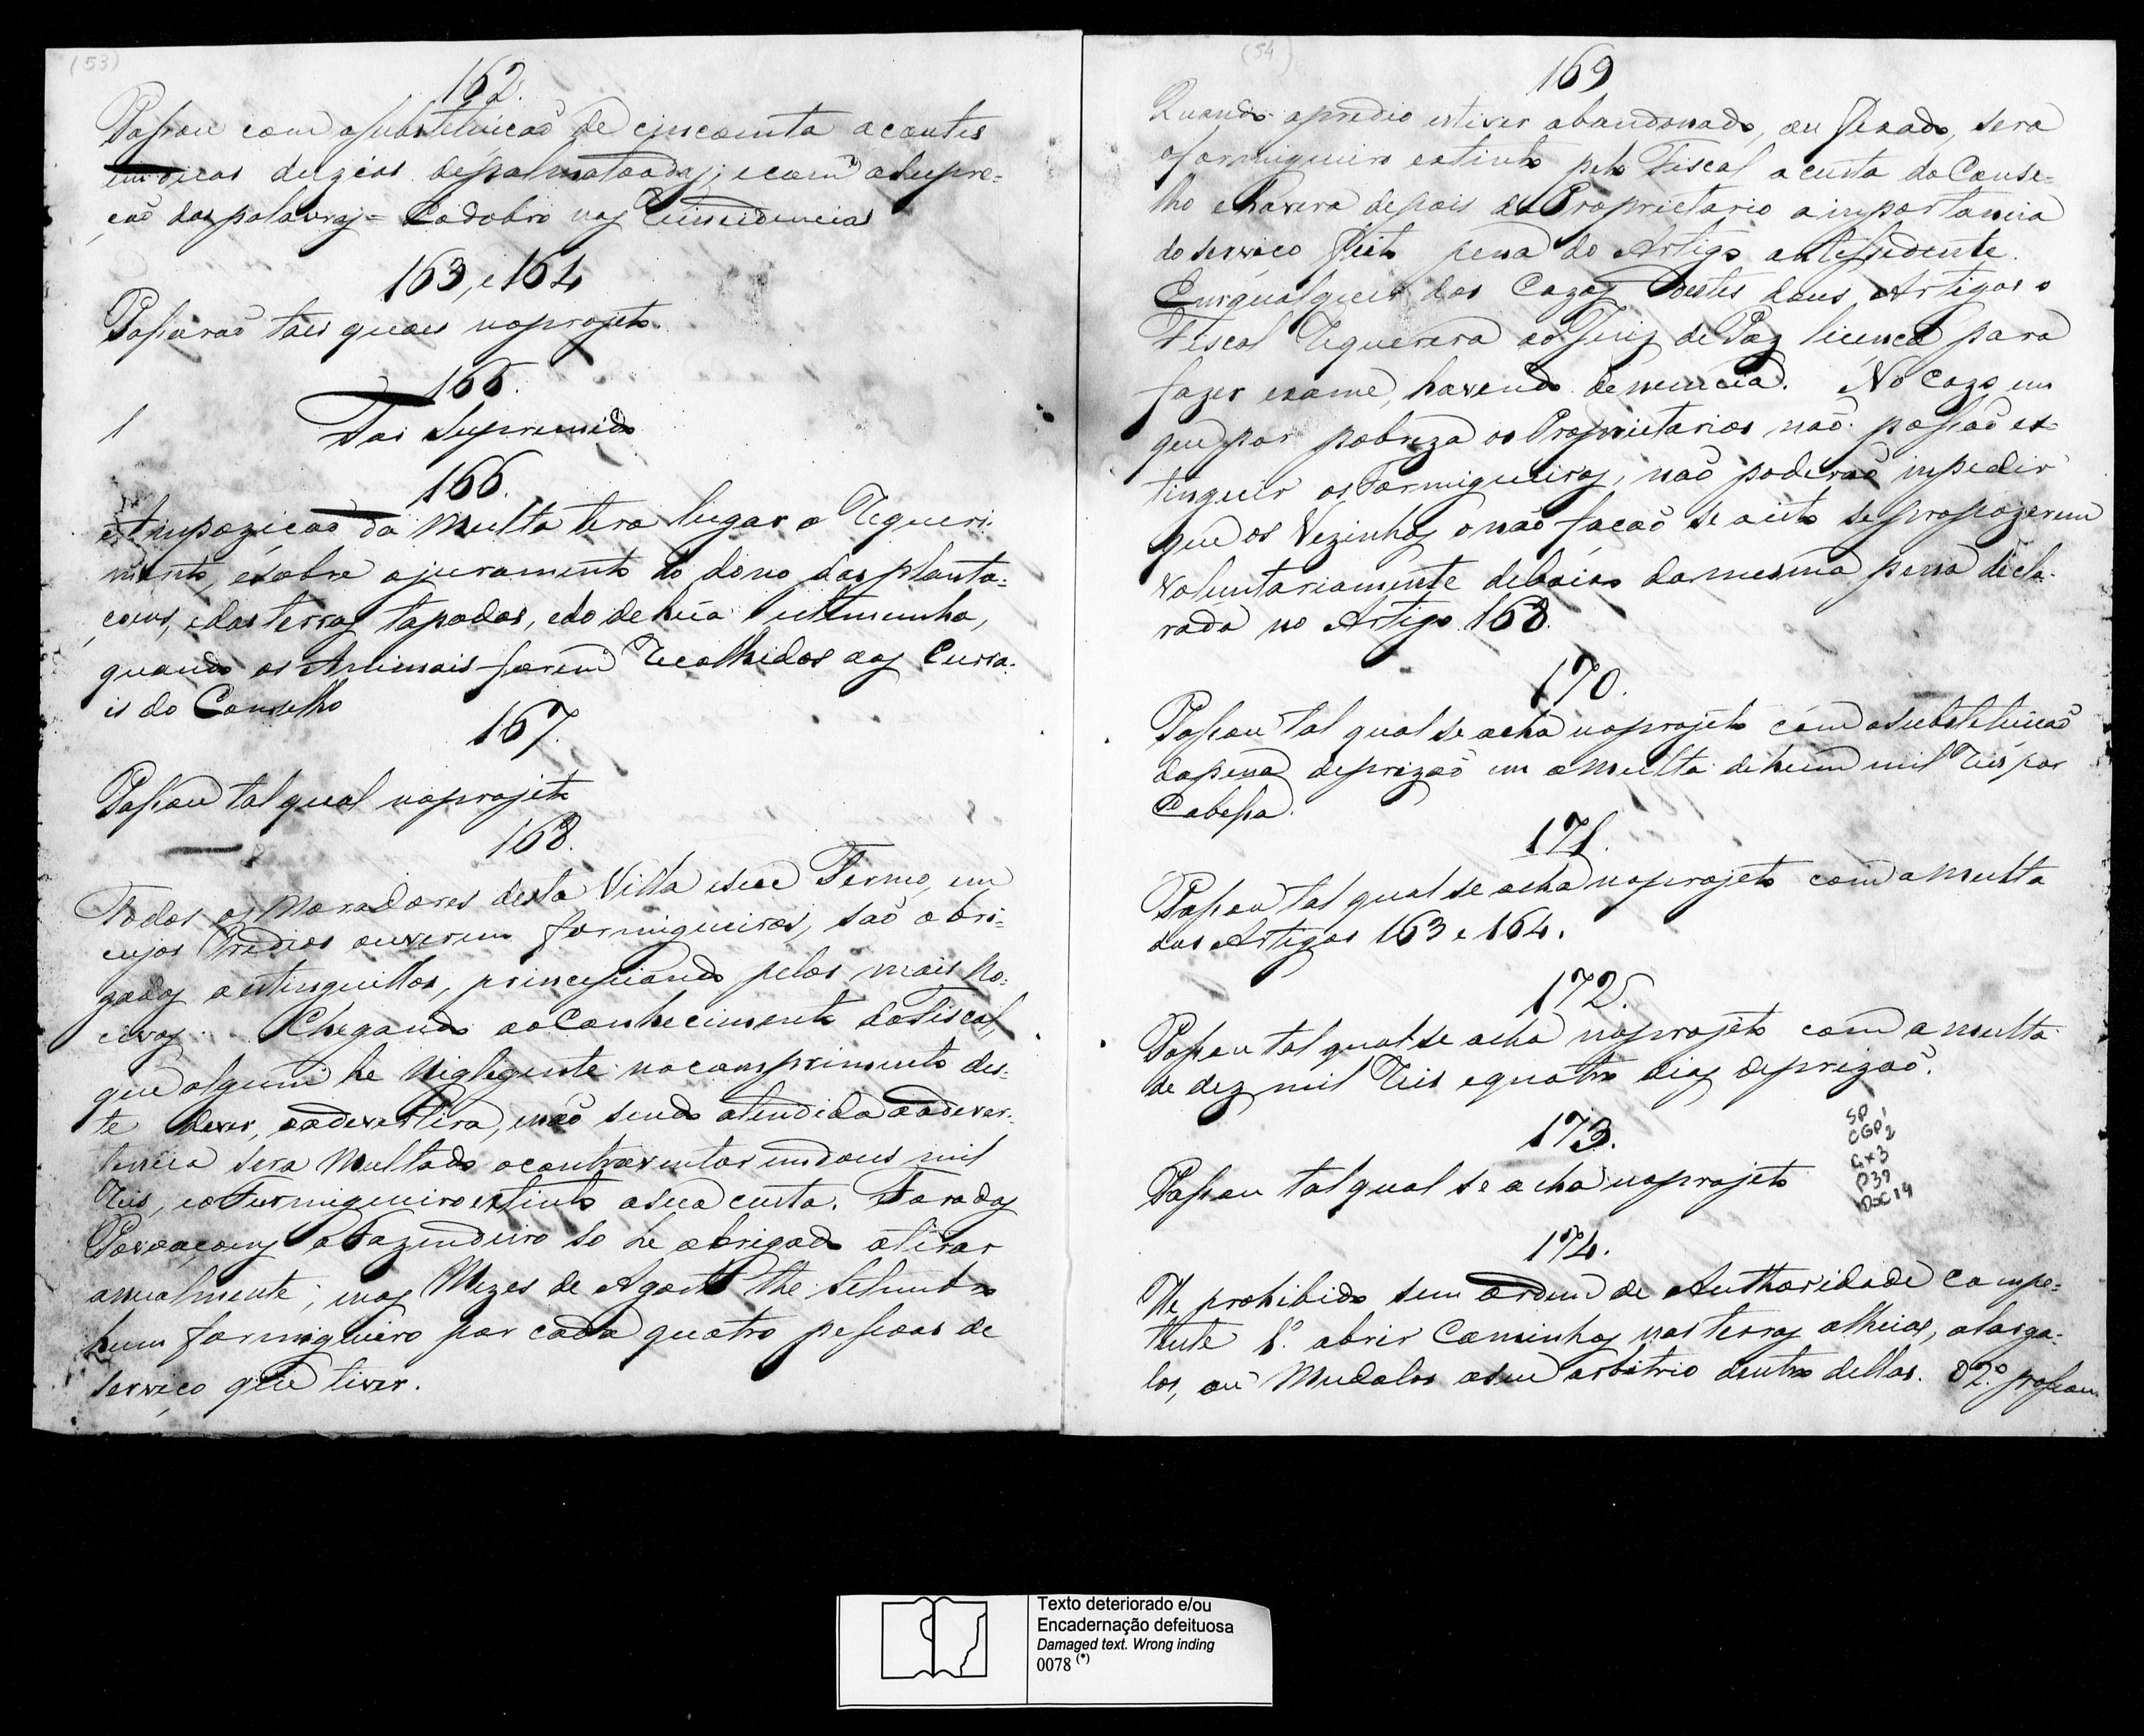 (53)
162.
Passou com a substetuicaõ de cincoenta acoutes
em vicas duzias depalmatoadas; e com asupre-
caõ das palavras = Eo dobro nas Reincidencias
163, e 164
Passaraõ taes quaes noprojeto
165.
Foi Supremido
166.
A inpozicaõ da Multa tera lugar a Requeri-
mento, esobre ojuramento do dono das planta-
coens, edas terras tapadas, edo de hũa testemunha,
quando os Animais forem Recolhidos aos Curra-
is do Conselho
167.
Passou tal qual noprojeto
168.
Todos os Moradores desta Villa eseu Termo, em
cujos Predios ouverem formigueiros, saõ obri-
gados aextinguillos, principiando pelos mais no-
civos. Chegando aoConhecimento doFiscal,
que algum he Nigligente nocomprimento des-
te dever, oadevertira, enaõ sendo atendida aadever-
tencia sera Multado ocontraventor emdous mil
Reis, eoFurmigueiro extinto asua custa. Foradas
Povoaçoens oFazendeiro so he obrigado atirar
anualmente, nos Mezes de Agosto the Setembro
hum formigueiro por cada quatro pessoas de
serviço que tiver.
(54)
169
Quando opredio estiver abandonado, ou serado, sera
oformigueiro extinto pelo Fiscal acusta do Conse-
lho ehavera depois do Proprietario aimportancia
do serviço feito pena do Artigo antessedente.
Emqualquer dos Cazos destes dous Artigos o
Fiscal Requerera ao Juiz de Paz licença para
fazer exame, havendo denuncia. No Cazo em
que por pobreza os Proprietarios naõ possaõ ex-
tinguir os Formigueiros, naõ poderaõ inpedir
que os Vezinhos onaõ facaõ se aisto sepropozerem
voluntariamente debaixo damesma pena decla-
rada no Artigo 168.
170.
Passou tal qual se acha noprojeto com asubstetuicaõ
dapena deprizaõ em aMulta dehum mil Reis por
Cabessa.
171.
Passou tal qual se acha noprojeto com a Multa
dos Artigos 163 e 164.
172.
Passou tal qual se acha noprojeto com a multa
de dez mil Reis equatro dias deprizaõ.
173.
Passou tal qual se acha noprojeto
SP
CGP, 2
Cx3
P39
Doc 14
174.
He prohibido sem ordem de Authoridade Compe-
tente 1º. abrir Caminhos nas terras alheias, alarga-
los, ou Mudalos aseu arbitrio dentro dellas. O 2º. passou
Texto deteriorado e/ou
Encadernação defeituosa
Damaged text. Wrong inding
0078 (*)